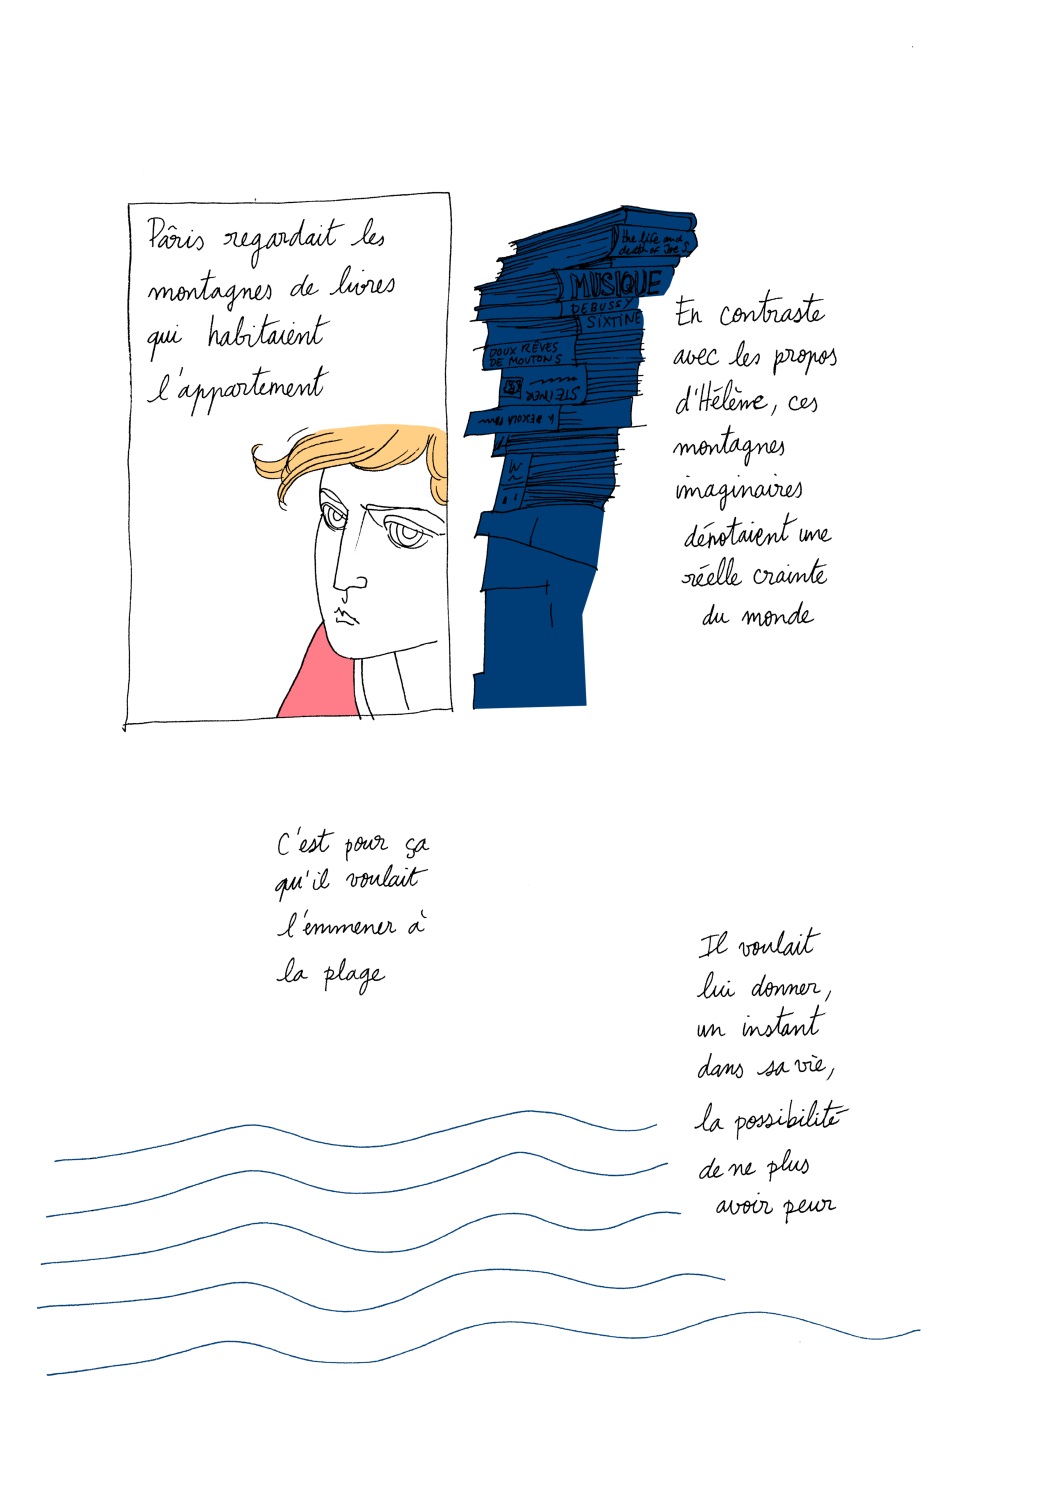 Pâris regardait les
montagnes de livres
qui habitaient
l'appartement
the life and
death of Joe S.
MUSIQUE
DEBUSSY
SIXTINE
DOUX RÊVES
DE MOUTONS
STEINER
En contraste
avec les propos
d'Hélène, ces
montagnes
imaginaires
dénotaient une
réelle crainte
du monde
C'est pour ça
qu'il voulait
l'emmener à
la plage
Il voulait
lui donner,
un instant
dans sa vie,
la possibilité
de ne plus
avoir peur